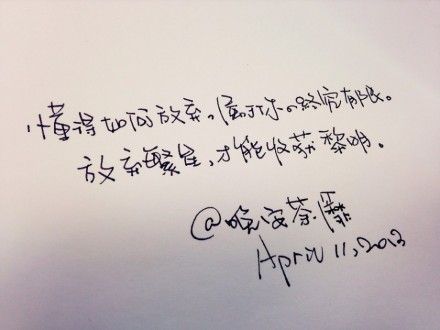 懂得如何放弃,属于你的终究有限。
放弃繁星,才能收获黎明。
@晚安茶靡
April 11, 2013